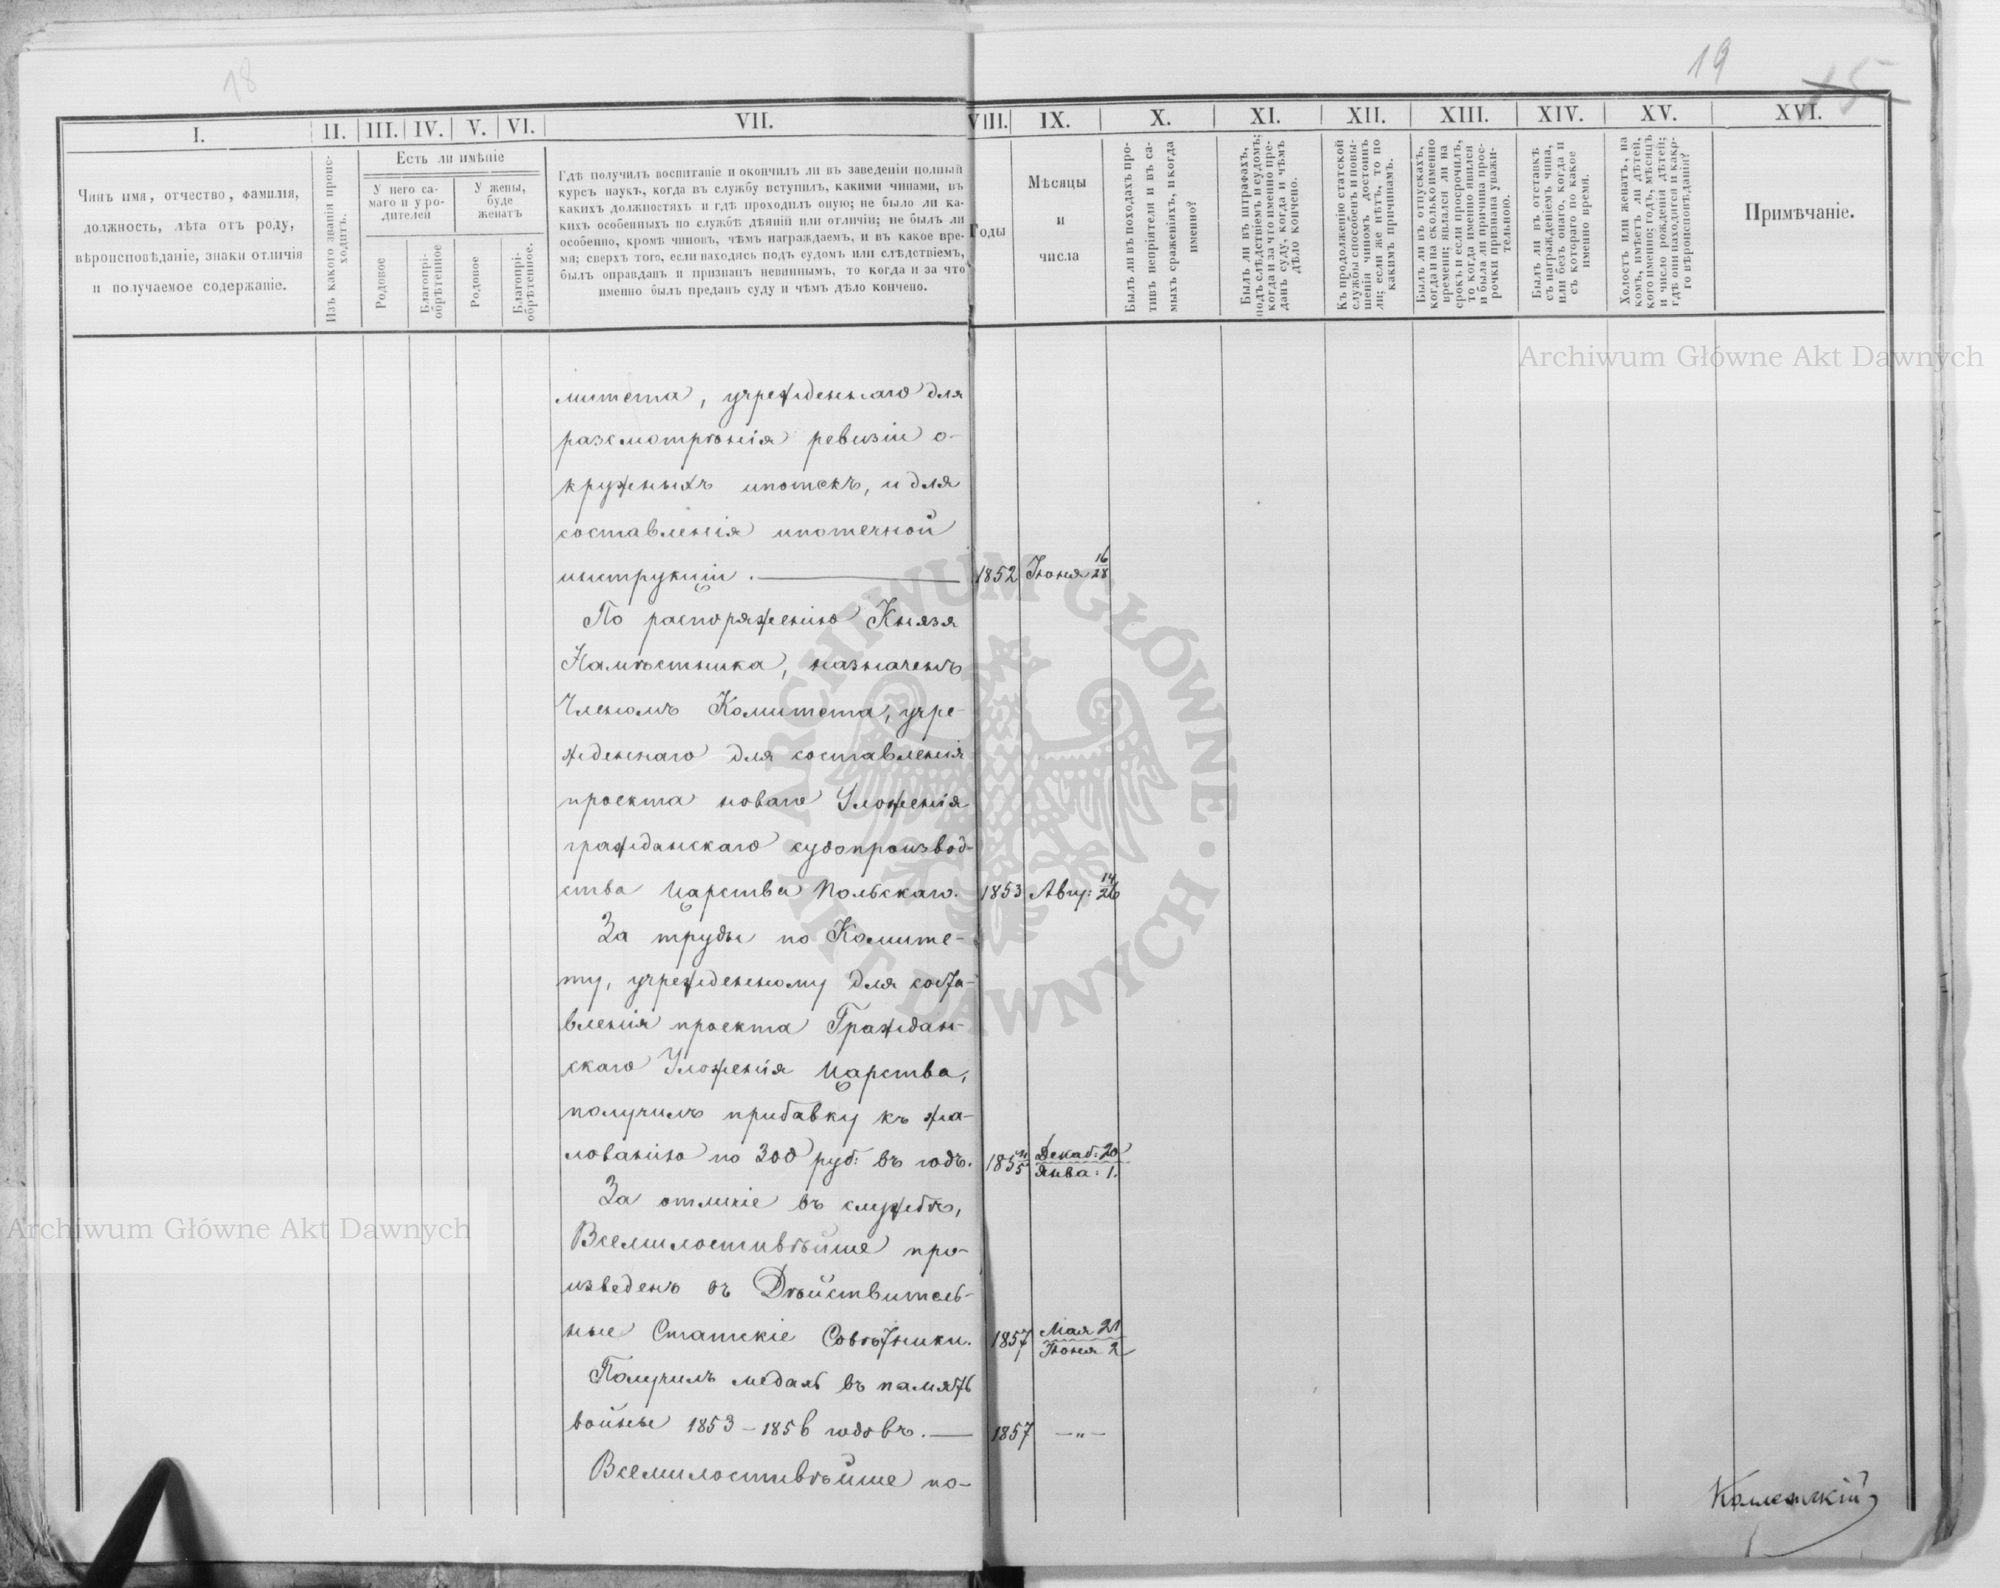 18
19
15
I.
II.
III.
IV.
V.
VI.
VII.
VIII.
IX.
X.
XI.
XII.
XIII.
XIV.
XV.
XVI.
Чинъ имя, отчество, фамилія,
должность, лѣта отъ роду,
вѣроисповѣданіе, знаки отличія
и получаемое содержаніе.
Изъ какого званія проис-
ходитъ.
Есть ли имѣніе
У него са-
маго и у ро-
дителей
У жены,
буде
женатъ
Родовое
Благопрі-
обрѣтенное
Родовое
Благопрі-
обрѣтенное.
Гдѣ получилъ воспитаніе и окончилъ ли въ заведеніи полный
курсъ наукъ, когда въ службу вступилъ, какими чинами, въ
какихъ должностяхъ и гдѣ проходилъ оную; не было ли ка-
кихъ особенныхъ по службѣ дѣяній или отличій; не былъ ли
особенно, кромѣ чиновъ, чѣмъ награждаемъ, и въ какое вре-
мя; сверхъ того, если находясь подъ судомъ или слѣдствіемъ,
былъ оправданъ и признанъ невиннымъ, то когда и за что
именно былъ преданъ суду и чѣмъ дѣло кончено.
Годы
Мѣсяцы
и
числа
Былъ ли въ походахъ про-
тивъ непріятеля и въ са-
мыхъ сраженіяхъ, и когда
именно?
Былъ ли въ штрафахъ,
подъ слѣдствіемъ и судомъ;
когда и за что именно пре-
данъ суду, когда и чѣмъ
дѣло кончено.
Къ продолженію статской
службы способенъ и повы-
шенія чиномъ достоинъ
ли; если же нѣтъ, то по
какимъ причинамъ.
Былъ ли въ отпускахъ,
когда и на сколько именно
времени; являлся ли на
срокъ и если просрочилъ,
то когда именно явился
и была ли причина прос-
рочки признана уважи-
тельною.
Былъ ли въ отставкѣ
съ награжденіемъ чина,
или безъ онаго, когда и
съ котораго по какое
именно время.
Холостъ или женатъ, на
комъ, имѣетъ ли дѣтей,
кого именно; годъ, мѣсяцъ
и число рожденія дѣтей;
гдѣ они находятся и како-
го вѣроисповѣданія?
Примѣчаніе.
митета, учрежденнаго для
разсмотрѣнія ревизіи о-
кружныхъ ипотекъ, и для
составленія ипотечной
инструкціи. 1852 Іюня 16/28
По распоряженію Князя
Намѣстника, назначенъ
Членомъ Комитета, учре-
жденнаго для составленія
проекта новаго Уложенія
гражданскаго судопроизвод-
ства Царства Польскаго. 1853 Авгу: 14/26
За труды по Комите-
ту, учрежденному для соста-
вленія проекта Граждан-
скаго Уложенія Царства,
получилъ прибавку къ жа-
лованію по 300 руб: въ годъ. 185 4/5 Декаб: 20
Янва: 1.
За отличіе въ службѣ,
Всемилостивѣйше про-
изведенъ въ Дѣйствитель-
ные Статскіе Совѣтники. 1857 Мая 21
Іюня 2
Получилъ медаль въ память
войны 1853–1856 годовъ. 1857 —"—
Всемилостивѣйше по-
Archiwum Główne Akt Dawnych
Archiwum Główne Akt Dawnych
ARCHIWUM GŁÓWNE AKT DAWNYCH